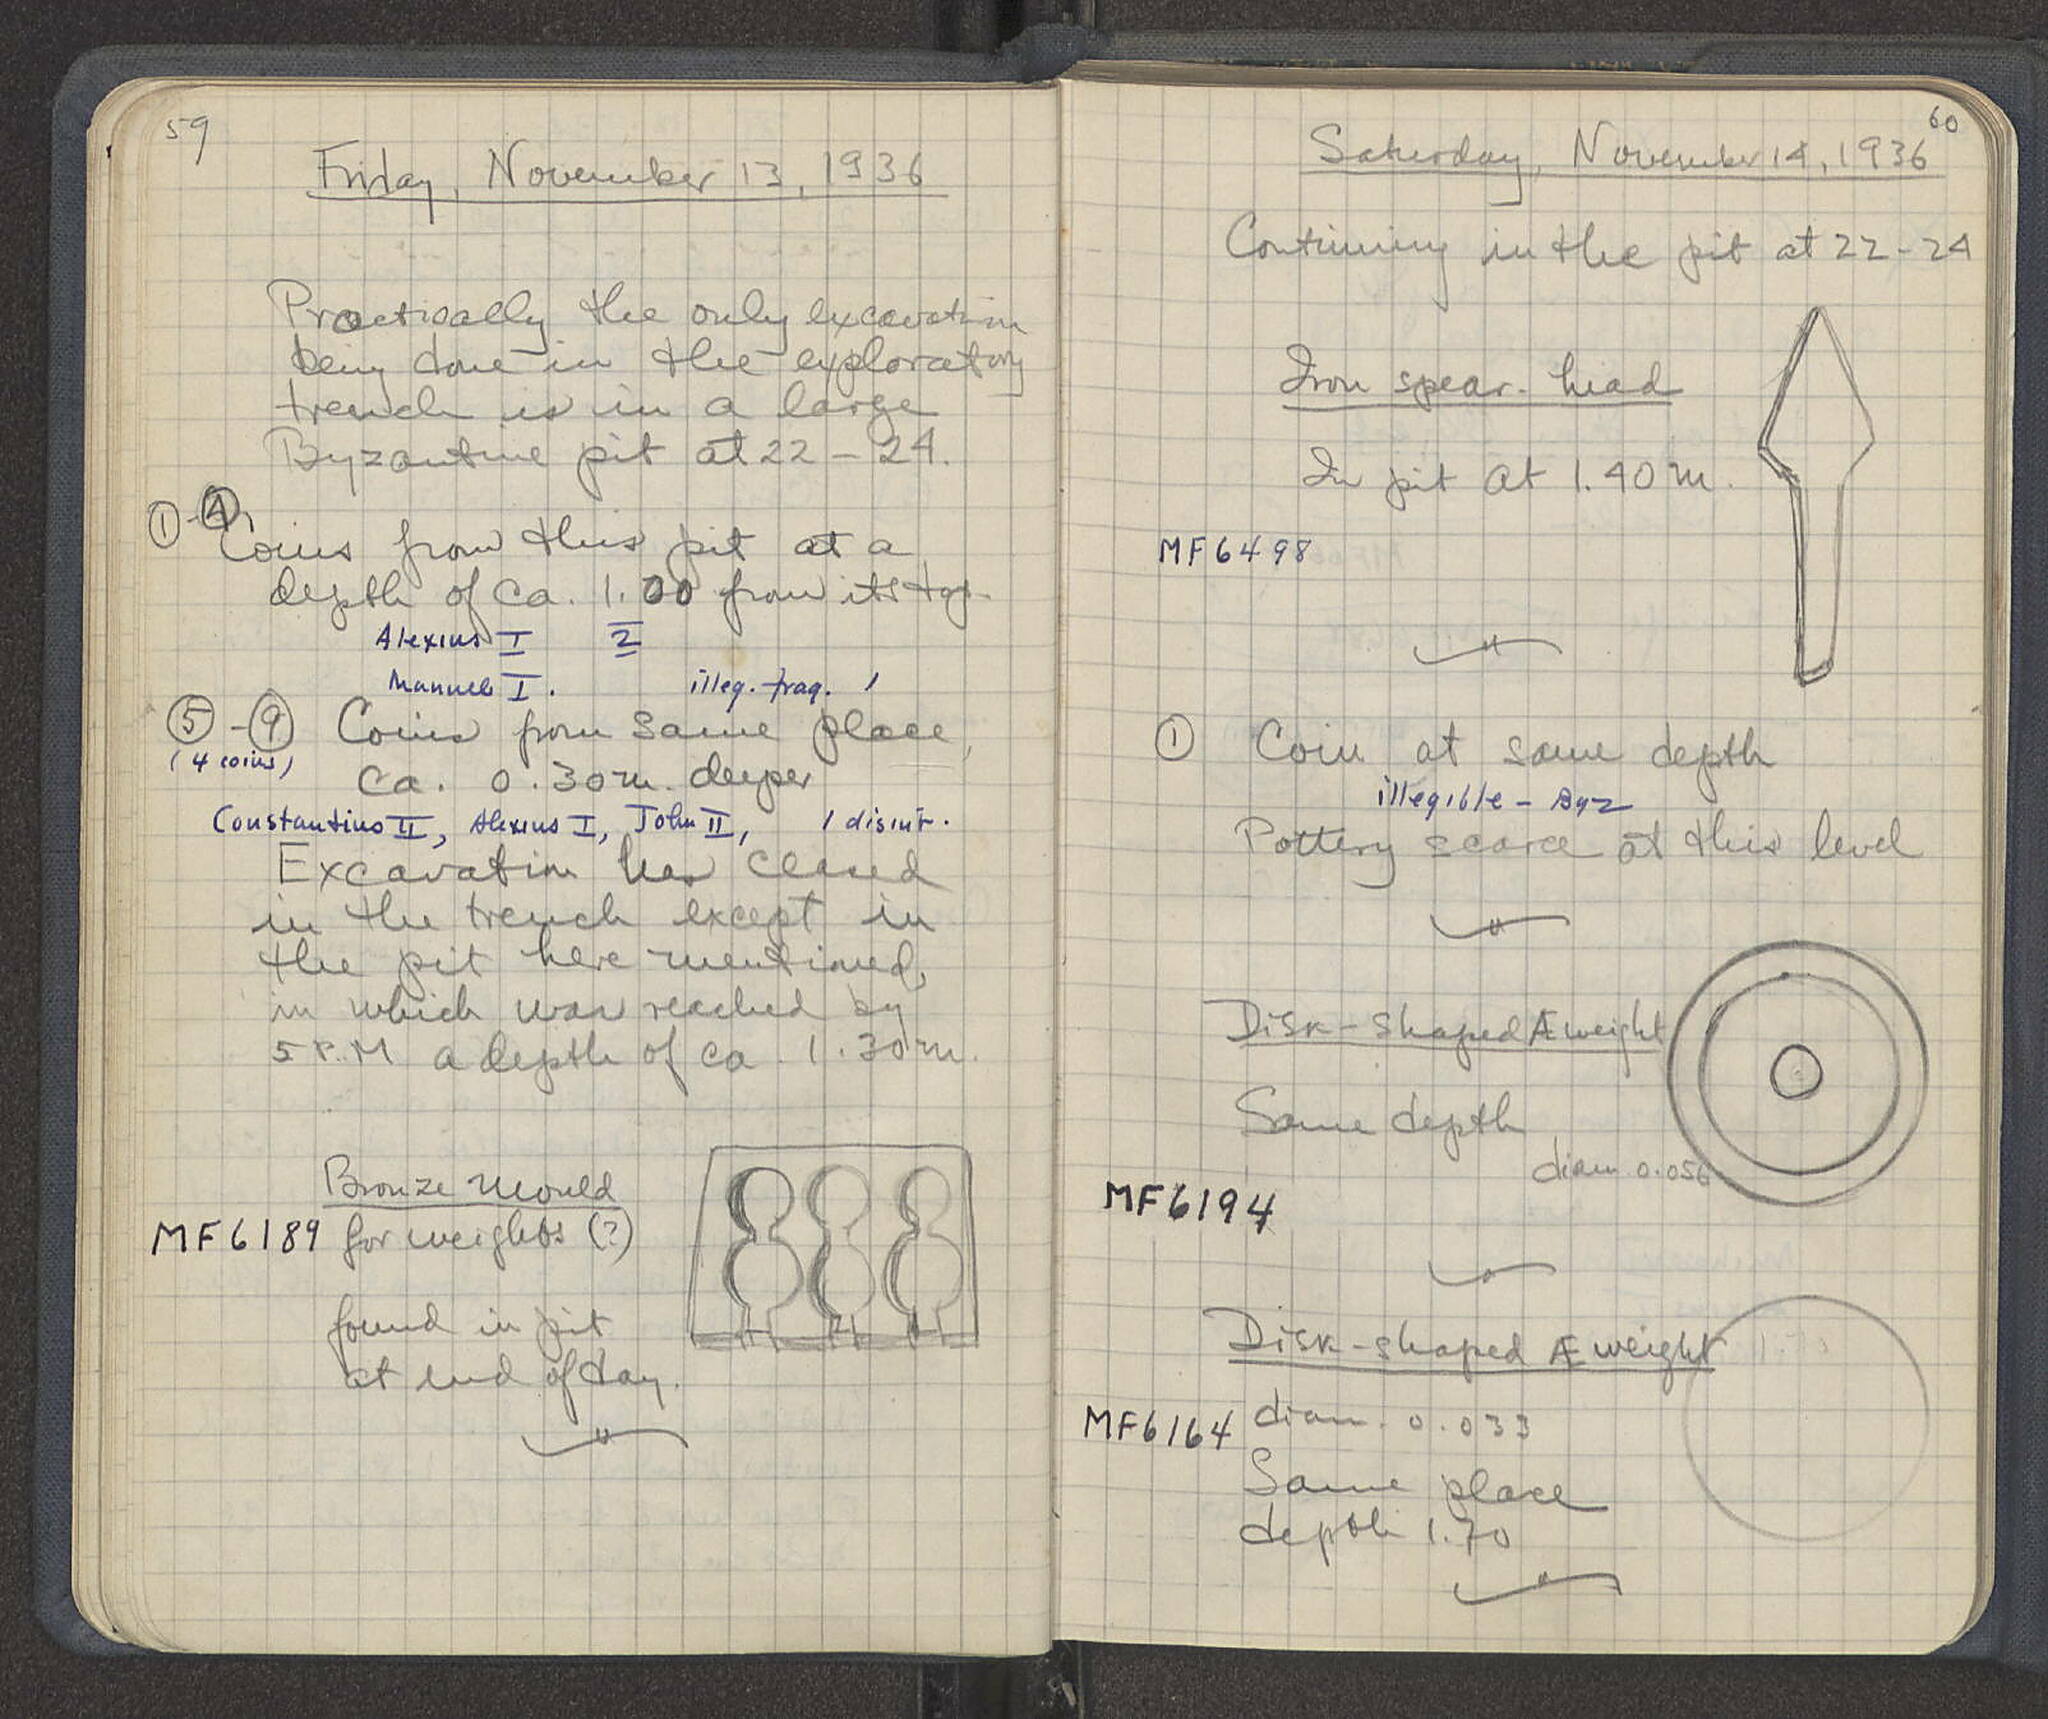 59
Friday, November 13, 1936
Practically the only excavation
being done in the exploratory
trench is in a large
Byzantine pit at 22 – 24.
① - ④
Coins from this pit at a
depth of ca. 1.00 from its top.
Alexius I 2
Manuel I. illeg. frag. 1
⑤ - ⑨ Coins from same place,
(4 coins)
ca. 0.30 m. deeper
Constantius II, Alexius I, John II, 1 disint.
Excavation has closed
in the trench except in
the pit here mentioned,
in which was reached by
5 P.M a depth of ca. 1.30 m.
Bronze mould
MF6189 for weights (?)
found in pit
at end of day.
60
Saturday, November 14, 1936
Continuing in the pit at 22 – 24
Iron spear-head
In pit at 1.40 m.
MF6498
① Coin at same depth
illegible – Byz
Pottery scarce at this level
Disk-shaped Æ weight
Same depth
diam 0.056
MF6194
Disk-shaped Æ weight
MF6164 diam. 0.033
Same place
depth 1.70